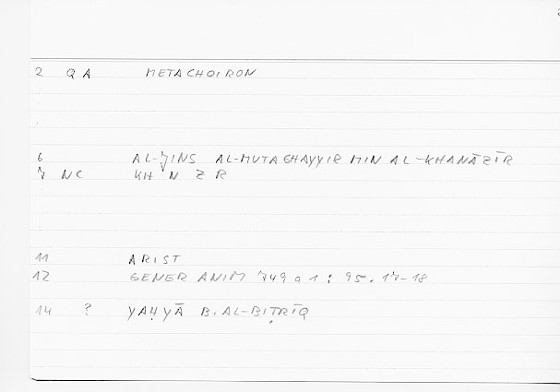 2 QA METACHOIRON
6 AL-ǦINS AL-MUTAGHAYYIR MIN AL-KHANĀZĪR
7 NC KH N Z R
11 ARIST
12 GENER ANIM 749 a 1 : 95.17-18
14 ? YAḤYĀ B. AL-BIṬRĪQ